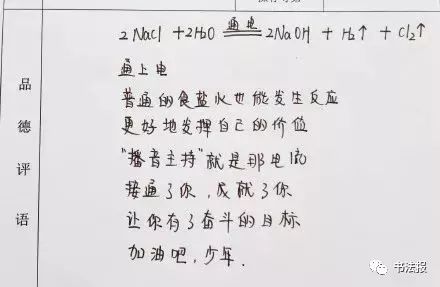 2NaCl + 2H2O 通电 2NaOH + H2↑ + Cl2↑
通上电
普通的食盐水也能发生反应
更好地发挥自己的价值
"播音主持"就是那电流
接通了你,成就了你
让你有了奋斗的目标
加油吧,少年.
品德评语
书法报